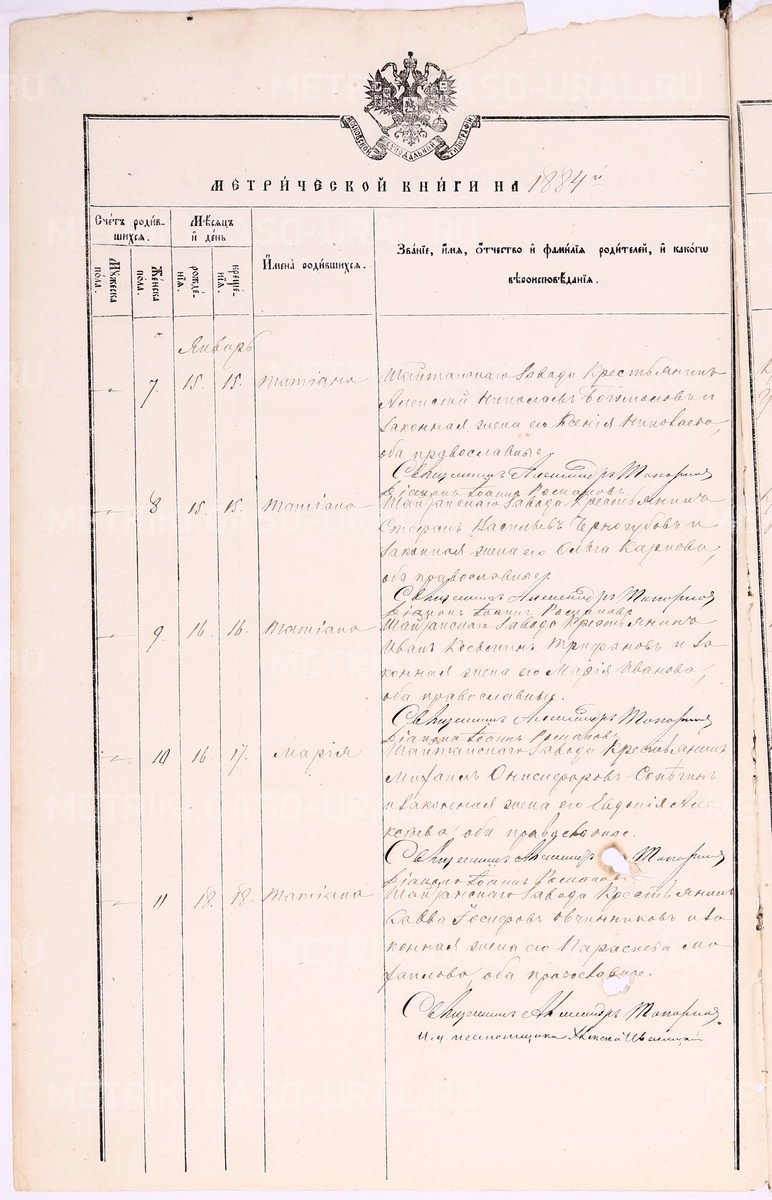 МОСКОВСКОЙ СѴНОДАЛЬНОЙ ТИПОГРАФІИ
МЕТРИ́ЧЕСКОЙ КНИ́ГИ НА 1884 й
Сче́тъ роди́в-
шихся.
Му́жеска
по́ла.
Же́нска
по́ла.
Мѣ́сяцъ
и҆ де́нь
рожде́-
нїѧ.
креще́-
нїѧ.
И҆мена̀ роди́вшихся.
Зва́нїе, и҆́мя, ѻ҆́тчество и҆ фами́лїѧ роди́телей, и҆ како́гѡ
вѣроисповѣ́данїѧ.
Январь
7. 15. 15. Татіана
Шайтанскаго завода Крестьянинъ
Алексѣй Николаевъ и
законная жена его Ксенія
оба православные
Священникъ Александръ Топорков
Діаконъ Іоаннъ Романовъ
8 15. 15. Татіана
Шайтанскаго завода Крестьянинъ
Стефанъ Васильевъ Черногубовъ и
законная жена его Ольга Карпова,
оба православные.
Священникъ Александръ
Діаконъ Іоаннъ Романовъ
9 16. 16. Татіана
Шайтанскаго завода Крестьянинъ
Иванъ Трифановъ и за
конная жена его Марія Иванова,
оба православные.
Священникъ Александръ
Діаконъ Іоаннъ Романовъ
10 16. 17. Марія
Шайтанскаго завода Крестьянинъ
Михаилъ Онисифоровъ
и законная жена его Евдокія Але
ксѣева, оба православные.
Священникъ Александръ
Діаконъ Іоаннъ Романовъ
11 18. 18. Татіана
Шайтанскаго завода Крестьянинъ
Савва Іосифовъ Овчинниковъ и за
конная жена его Параскева Ми
хаилова, оба православные.
Священникъ Александръ
И. д. псаломщика Алексѣй
METRIKI.GASO-URAL.RU